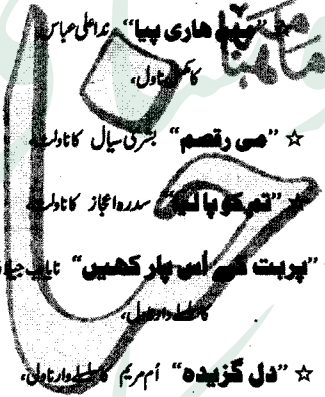 ☆ "میں ہاری پیا" ندا علی عباس
کا مکمل ناول،
☆ "می رقصم" بشریٰ سیال کا ناولٹ،
☆ "تم کو پا لیا" سدرہ اعجاز کا ناولٹ،
"پربت کے اُس پار کہیں" نایاب جیلانی
کا سلسلے وار ناول،
☆ "دل گزیدہ" اُم مریم کا سلسلے وار ناول،
ماہنا
حنا